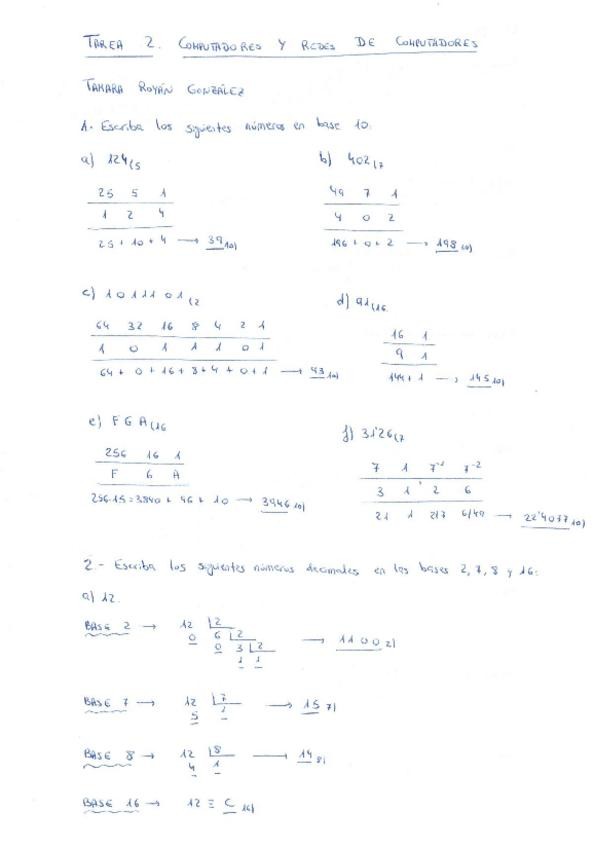 TAREA 2. COMPUTADORES Y REDES DE COMPUTADORES
TAMARA ROYÁN GONZÁLEZ
1.- Escriba los siguientes números en base 10.
a) 124(5
b) 402(7
25 5 1
49 7 1
1 2 4
4 0 2
25 + 10 + 4 → 39 10)
196 + 0 + 2 → 198 10)
c) 1011101(2
d) 91(16
64 32 16 8 4 2 1
16 1
1 0 1 1 1 0 1
9 1
64 + 0 + 16 + 8 + 4 + 0 + 1 → 93 10)
144 + 1 → 145 10)
e) F6A(16
f) 31'26(7
256 16 1
7 1 7⁻¹ 7⁻²
F 6 A
3 1 ' 2 6
256·15 = 3840 + 96 + 10 → 3946 10)
21 1 2/7 6/49 → 22'4077 10)
2.- Escriba los siguientes números decimales en las bases 2, 7, 8 y 16:
a) 12.
BASE 2 → 12 |2
0 6 |2
0 3 |2
1 1
→ 1100 2)
BASE 7 → 12 |7 → 15 7)
5 1
BASE 8 → 12 |8 → 14 8)
4 1
BASE 16 → 12 ≡ C 16)